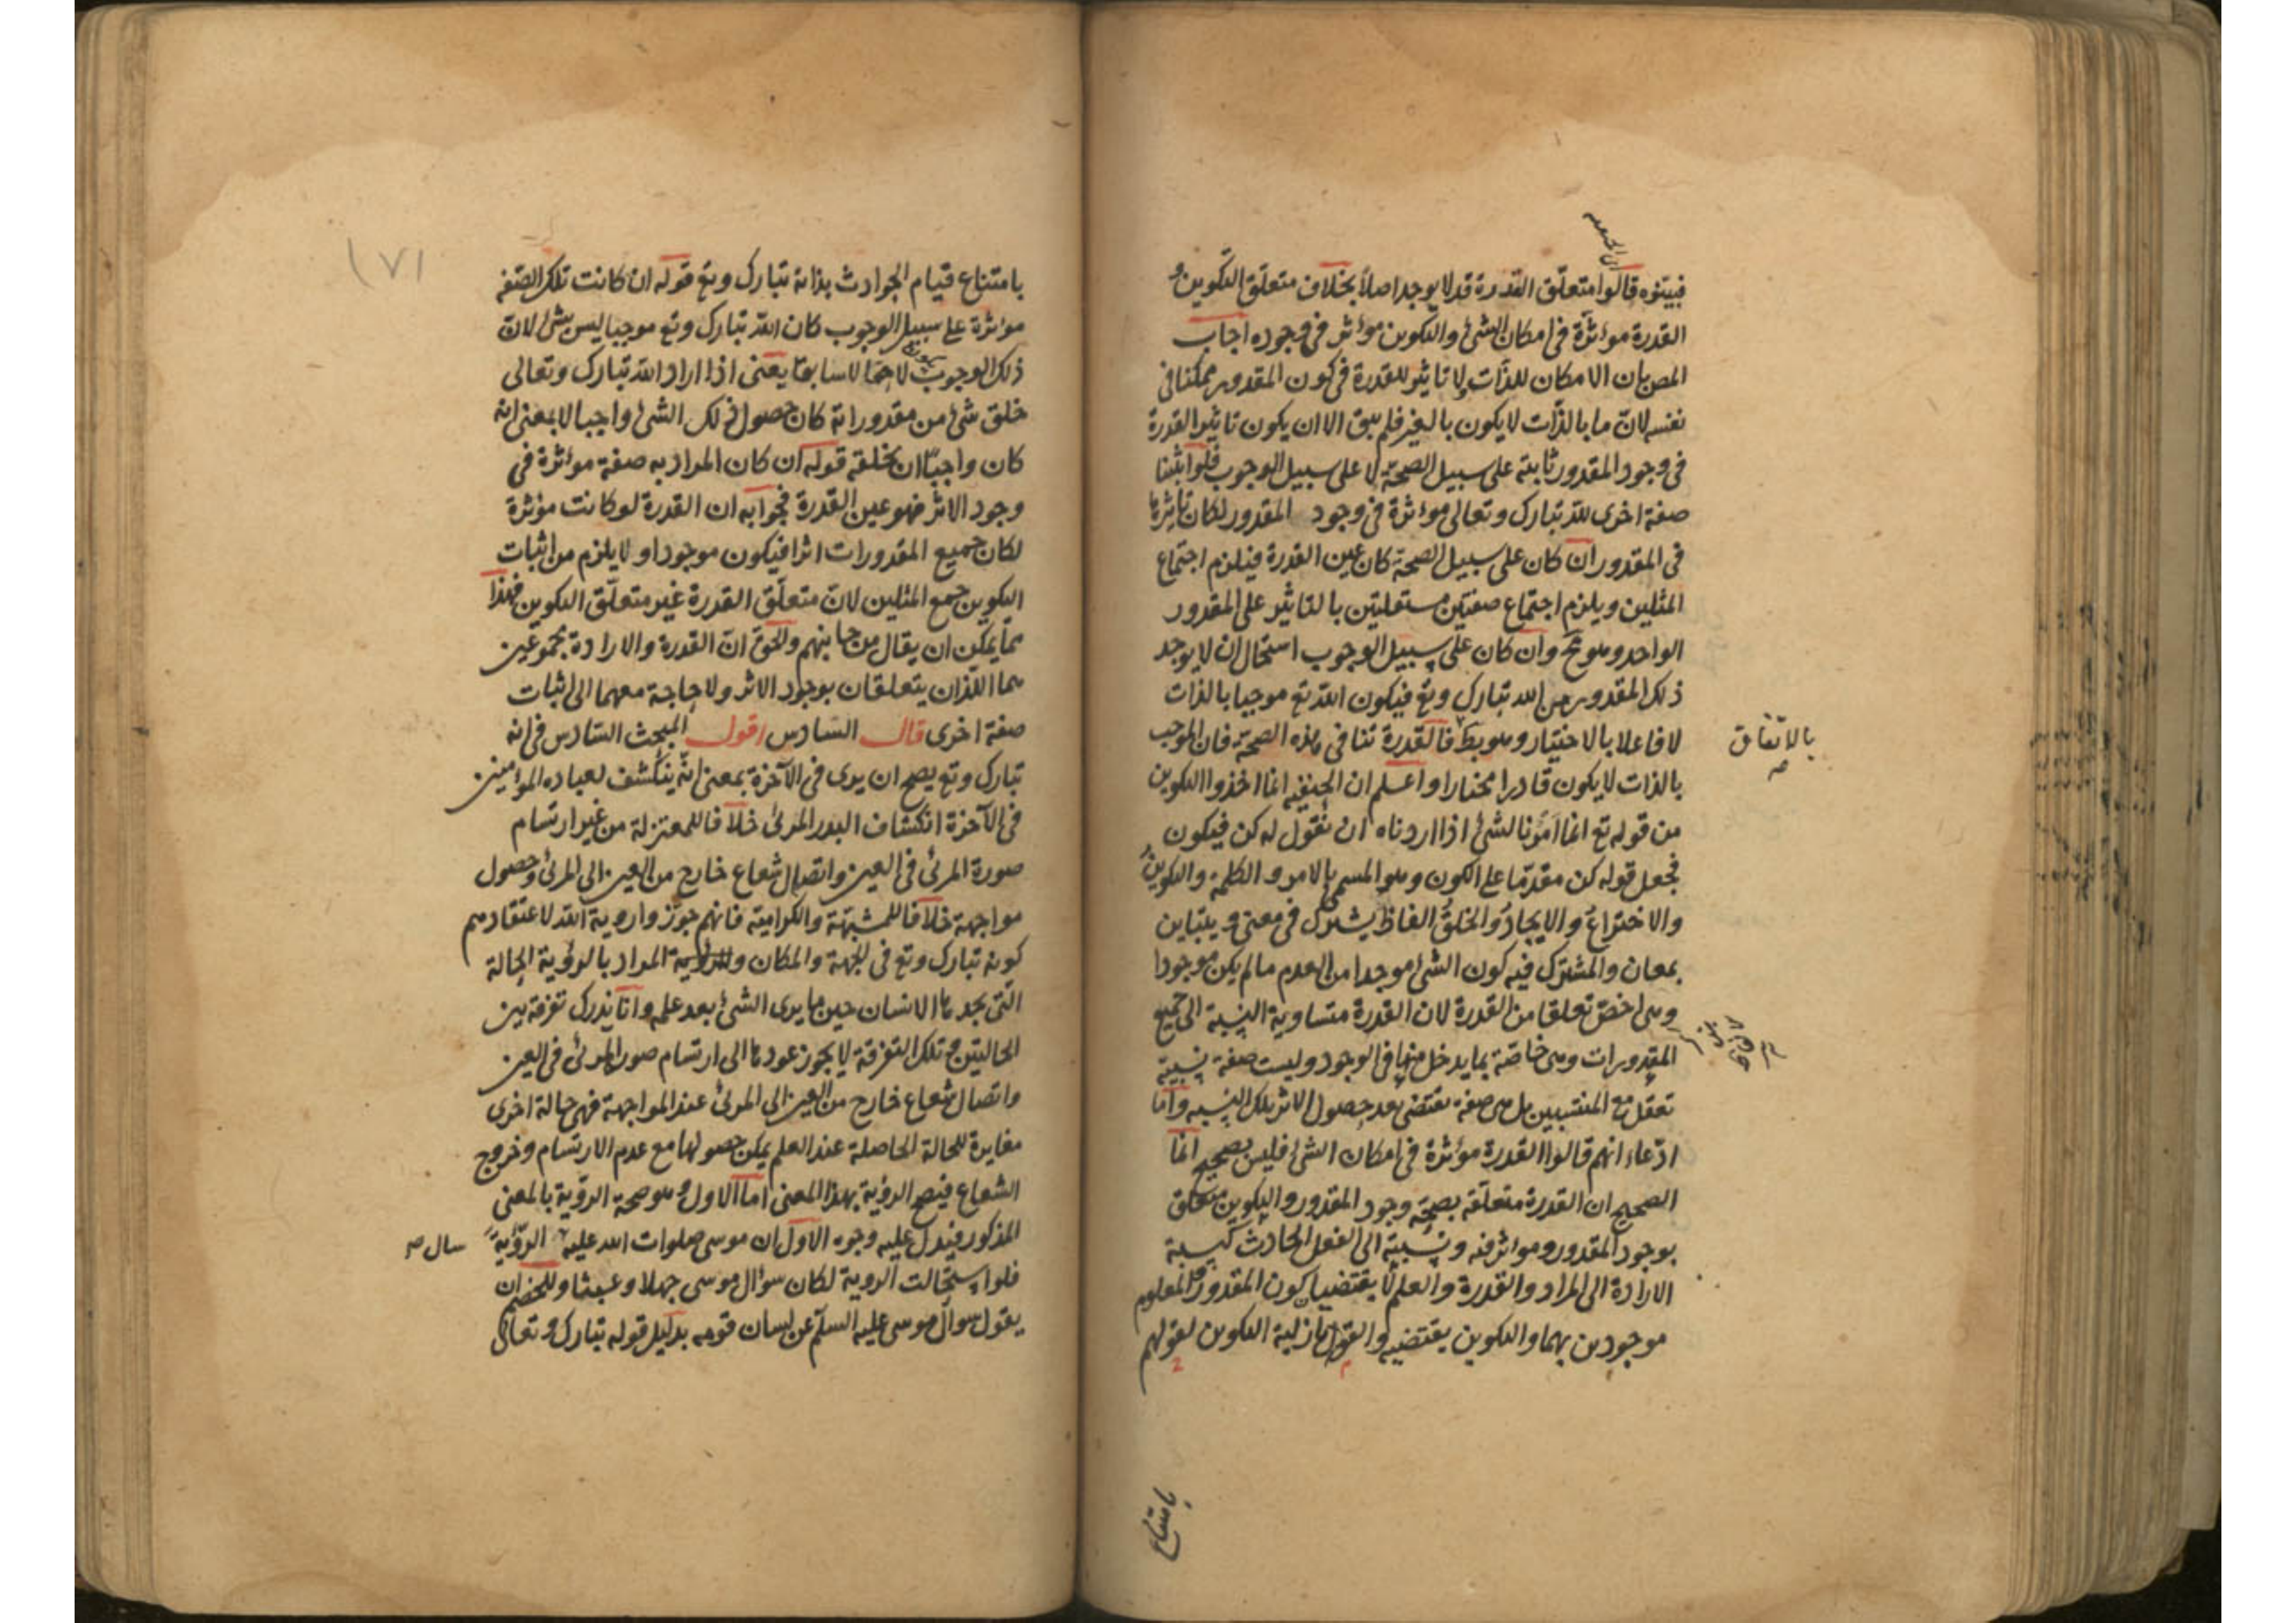 فبينوه قالوا متعلق القدرة قد لا يوجد اصلا بخلاف متعلق التكوين و
القدرة موءثرة فى امكان الشئ والتكوين موءثر فى وجوده اجاب
المص بان الامكان للذات ولا تاثير للقدرة فى كون المقدور ممكنا فى
نفسه لان ما بالذات لا يكون بالغير فلم يبق الا ان يكون تاثير القدرة
فى وجود المقدور ثابتة على سبيل الصحة لا على سبيل الوجوب فلو اثبتنا
صفة اخرى لله تبارك وتعالى موءثرة فى وجود المقدور لكان تاثيرها
فى المقدور ان كان على سبيل الصحة كان عين القدرة فيلزم اجتماع
المثلين ويلزم اجتماع صفتين مستقلتين بالتاثير على المقدور
الواحد وهو مح وان كان على سبيل الوجوب استحال ان لا يوجد
ذلك المقدور من الله تبارك وتع فيكون الله تع موجبا بالذات
لا فاعلا بالاختيار وهو بط فالقدرة تنافى هذه الصحة فان الموجب
بالاتفاق صه
بالذات لا يكون قادرا مختارا واعلم ان الحنيفة انما اخذوا التكوين
من قوله تع انما امرنا لشئ اذا اردناه ان نقول له كن فيكون
فجعل قوله كن مقدما على الكون وهو المسمى بالامر والكلمة والتكوين
والاختراع والايجاد والخلق الفاظ يشترك فى معنى ويتباين
بمعان والمشترك فيه كون الشئ موجدا من العدم ما لم يكن موجودا
وهى اخص تعلقا من القدرة لان القدرة متساوية النسبة الى جميع
المقدورات وهى خاصة بما يدخل منها فى الوجود وليست صفة نسبية
تعقل مع المنتسبين بل هى صفة تقتضى بعد حصول الاثر تلك النسبه واما
ادعاء انهم قالوا القدرة موءثرة فى امكان الشئ فليس بصحيح انما
الصحيح ان القدرة متعلقة بصحة وجود المقدور والتكوين متعلق
بوجود المقدور وموءثر فيه ونسبته الى الفعل الحادث كنسبة
الارادة الى المراد والقدرة والعلم لا يقتضيان كون المقدور والمعلوم
موجودين بهما والتكوين يقتضيه والقول بازلية التكوين لقولهم
بامتناع
١٧١
بامتناع قيام الحوادث بذاته تبارك وتع قوله ان كانت تلك الصفة
موءثرة على سبيل الوجوب كان الله تبارك وتع موجبا ليس بشئ لان
ذلك الوجوب لاحقا لا سابقا يعنى اذا اراد الله تبارك وتعالى
خلق شئ من مقدوراته كان حصول ذلك الشئ واجبا لا بمعنى انه
كان واجبا ان يخلقه قوله ان كان المراد به صفة موءثرة فى
وجود الاثر فهو عين القدرة فجوابه ان القدرة لو كانت موءثرة
لكان جميع المقدورات اثرا فيكون موجودا ولا يلزم من اثبات
التكوين جمع المثلين لان متعلق القدرة غير متعلق التكوين فهذا
مما يمكن ان يقال من جانبهم والحق ان القدرة والارادة مجموعين
هما اللذان يتعلقان بوجود الاثر ولا حاجة معهما الى اثبات
صفة اخرى قال السادس اقول المبحث السادس فى انه
تبارك وتع يصح ان يرى فى الآخرة بمعنى انه ينكشف لعباده الموءمنين
فى الآخرة انكشاف البدر المرئى خلافا للمعتزلة من غير ارتسام
صورة المرئى فى العين واتصال شعاع خارج من العين الى المرئى وحصول
مواجهة خلافا للمشبهة والكرامية فانهم جوزوا روية الله لاعتقادهم
كونه تبارك وتع فى الجهة والمكان المراد بالروءية الحالة
التى يجدها الانسان حين ما يرى الشئ بعد علمه وانا ندرك تفرقة بين
الحالتين وتلك التفرقة لا يجوز عودها الى ارتسام صورة المرئى فى العين
واتصال شعاع خارج من العين الى المرئى عند المواجهة فهى حالة اخرى
مغايرة للحالة الحاصلة عند العلم يمكن حصولها مع عدم الارتسام وخروج
الشعاع فيصح الروءية بهذا المعنى اما الاول وهو صحة الروءية بالمعنى
المذكور فيدل عليه وجوه الاول ان موسى صلوات الله عليه الروءية
سال صه
فلو استحالت الروية لكان سوءال موسى جهلا وعبثا وللخصم ان
يقول سوال موسى عليه السلم عن لسان قومه بدليل قوله تبارك وتعالى